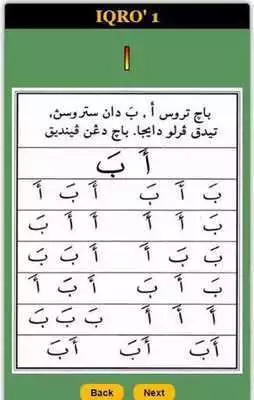 IQRO' 1
١
باچ تروس أ , بَ دان ستروسڽ,
تيدق ڤرلو دايجا. باچ دڠن ڤينديق
أَ بَ
بَ أَ بَ أَ بَ أَ
أَ أَ بَ أَ أَ بَ
بَ بَ أَ أَ بَ بَ
بَ أَ بَ أَ بَ أَ
أَ أَ أَ بَ بَ بَ
أَبَ أَبَ أَبَ
Back Next